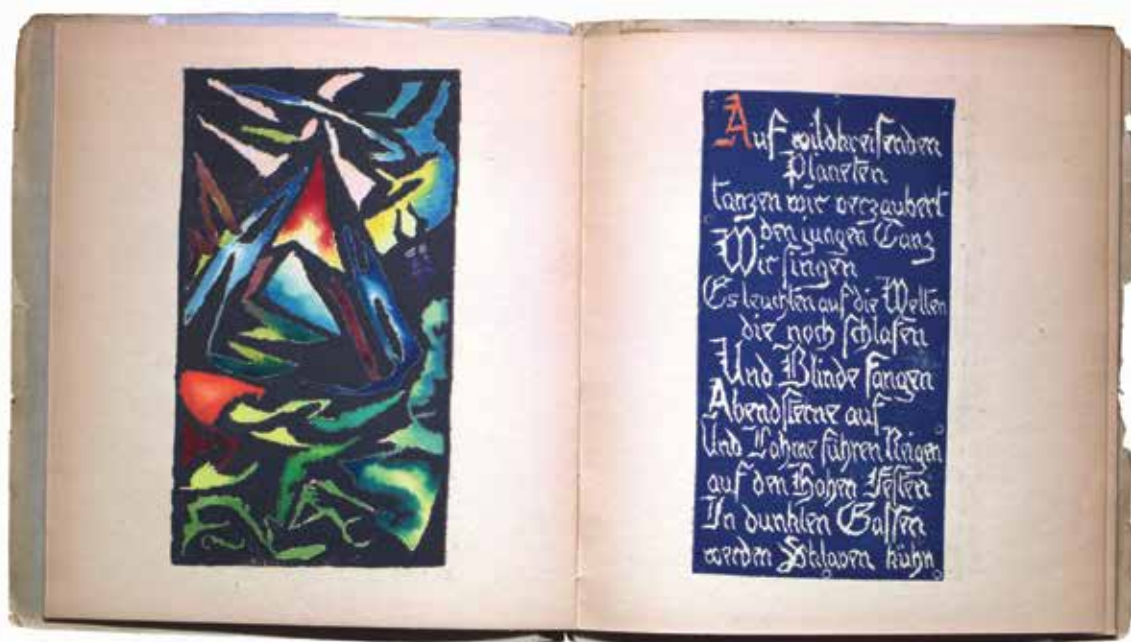 Auf wildkreisenden
Planeten
tanzen wir verzaubert
den jungen Tanz
Wir singen
Es leuchten auf die Welten
die noch schlafen
Und Blinde fangen
Abendsterne auf
Und Lahme führen Reigen
auf den Hohen Festen
In dunklen Gassen
werden Sklaven kühn